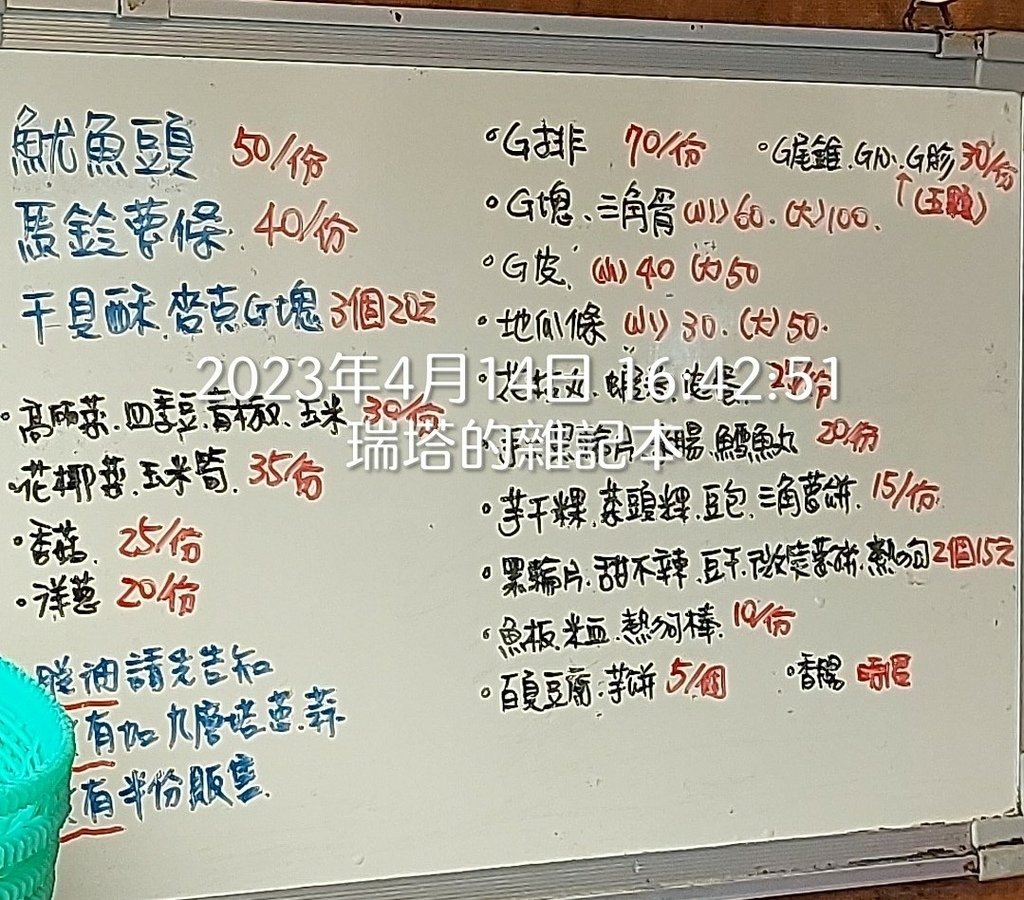 魷魚頭 50/份
馬鈴薯條. 40/份
干貝酥.麥克G塊 3個20元
•高麗菜.四季豆.青椒.玉米 30/份
•花椰菜.玉米筍. 35/份
•香菇. 25/份
•洋蔥 20/份
油請先告知
有加九層塔.蔥.蒜
有半份販售.
•G排 70/份
•G尾錐.G心.G胗 30/份
•G塊.三角骨(小)60.(大)100.
•G皮.(小)40 (大)50
•地瓜條 (小)30.(大)50.
25/份
片 腸.鱈魚丸 20/份
•芋干粿.菜頭粿.豆包.三角薯餅. 15/份.
•黑輪片.甜不辣.豆干. 薯餅.熱狗2個15元
•魚板.米血.熱狗棒. 10/份
•百頁豆腐.芋餅 5/個
•香腸
2023年4月14日 16:42:51
瑞塔的雜記本